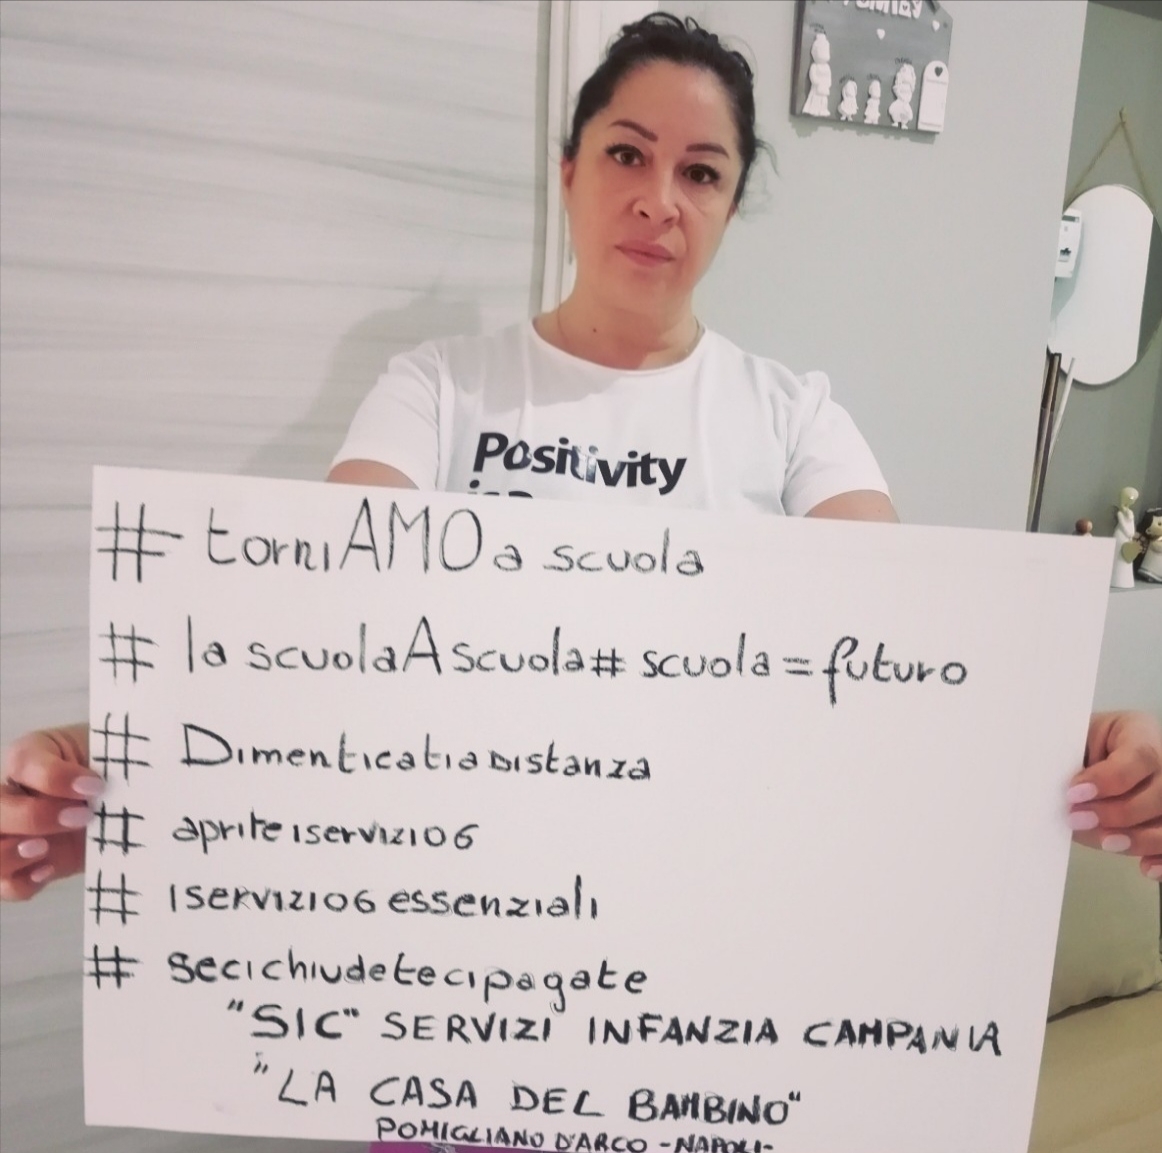 Positivity
# torniAMO a scuola
# la scuolaAscuola# scuola = futuro
# DimenticatiaDistanza
# apriteiservizi06
# iservizi06essenziali
# secichiudetecipagate
"SIC" SERVIZI INFANZIA CAMPANIA
"LA CASA DEL BAMBINO"
POMIGLIANO D'ARCO -NAPOLI-